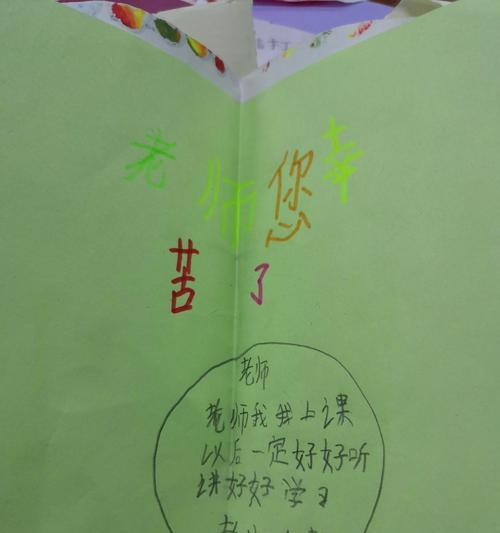 老师您幸
苦了
老师
老师我我上课
以后一定好好听
讲好好学习